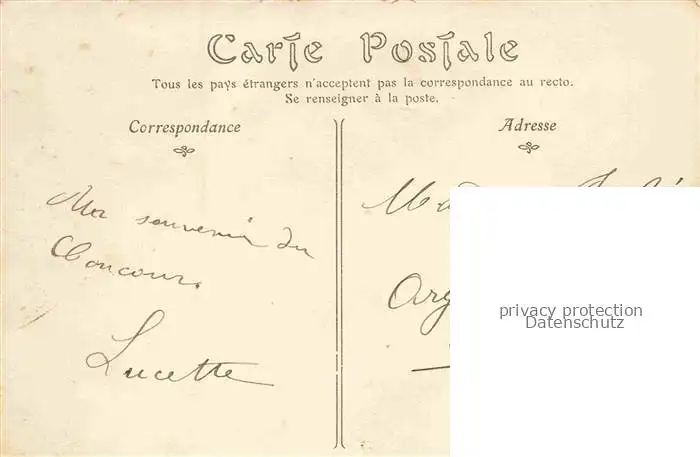 Carte Postale
Tous les pays étrangers n'acceptent pas la correspondance au recto.
Se renseigner à la poste.
Correspondance
Adresse
souvenir du
Concours.
Lucette
privacy protection
Datenschutz